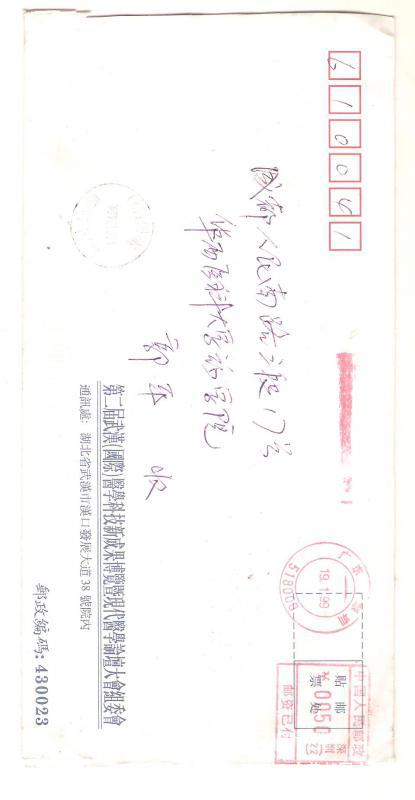 610041
成都人民南路三段17号
华西医科大学药学院
郭平 收
广东 深圳
19.1.99
518000
中国人民邮政
贴邮票处
¥0050
深圳
邮资已付
第二屆武漢(國際)醫學科技新成果博覽暨現代醫學論壇大會組委會
通訊處: 湖北省武漢市漢口發展大道38號院內
郵政編碼: 430023